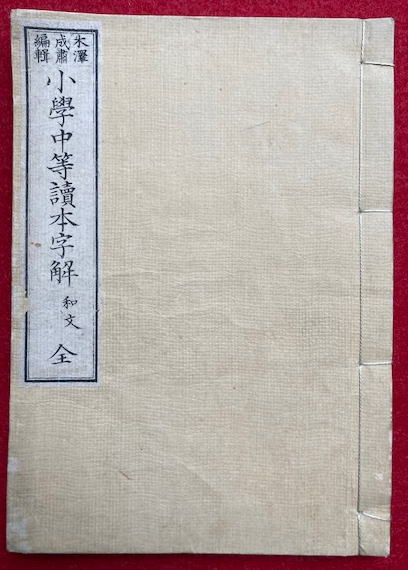 木澤
成肅
編輯
小學中等讀本字解 和文 全